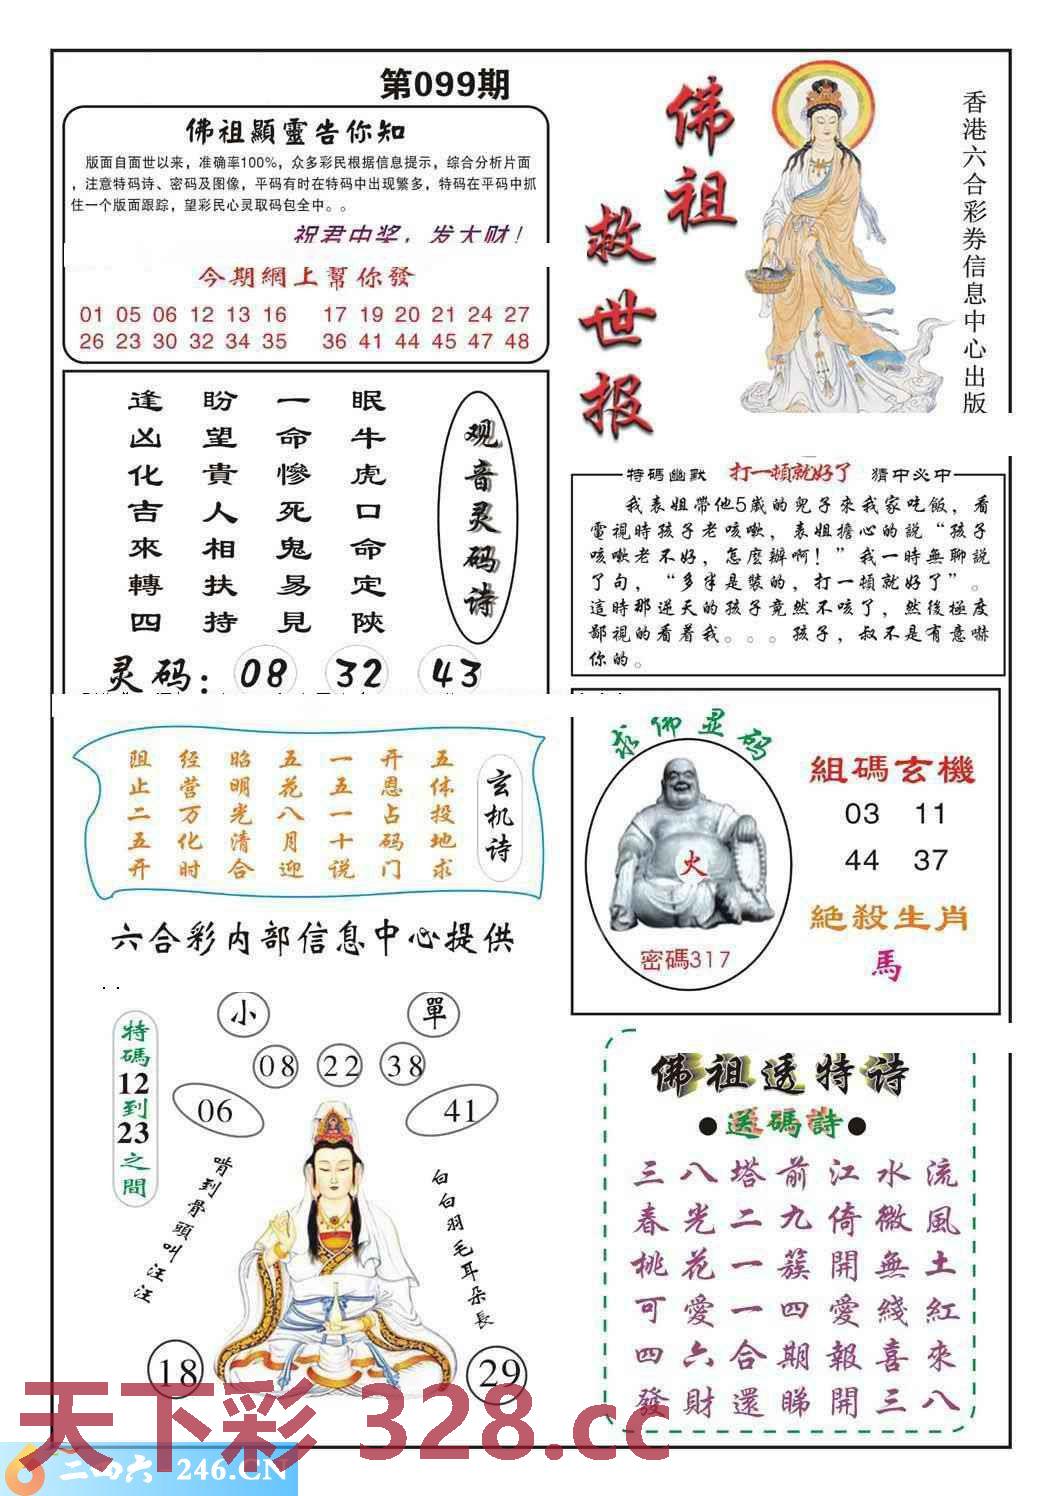 第099期
佛祖顯靈告你知
版面自面世以来，准确率100%，众多彩民根据信息提示，综合分析片面
，注意特码诗、密码及图像，平码有时在特码中出现繁多，特码在平码中抓
住一个版面跟踪，望彩民心灵取码包全中。。
祝君中奖，发大财！
今期網上幫你發
01 05 06 12 13 16 17 19 20 21 24 27
26 23 30 32 34 35 36 41 44 45 47 48
佛祖
救世报
香港六合彩券信息中心出版
观音灵码诗
眠牛虎口命定陝
一命慘死鬼易見
盼望貴人相扶持
逢凶化吉來轉四
灵码：08 32 43
特碼幽默 打一頓就好了 猜中必中
我表姐帶他5歲的兒子來我家吃飯，看
電視時孩子老咳嗽，表姐擔心的説“孩子
咳嗽老不好，怎麽辦啊！”我一時無聊説
了句，“多半是裝的，打一頓就好了”。
這時那逆天的孩子竟然不咳了，然後極度
鄙視的看着我。。。孩子，叔不是有意嚇
你的。
玄机诗
五体投地求
开恩占码门
一五一十说
五花八月迎
昭明光清合
经营万化时
阻止二五开
六合彩内部信息中心提供
求佛显码
火
密碼317
組碼玄機
03 11
44 37
絶殺生肖
馬
特碼12到23之間
小
單
08 22 38
06
41
啃到骨頭叫汪汪
白白羽毛耳朵長
18
29
佛祖透特诗
●送碼詩●
三八塔前江水流
春光二九倚微風
桃花一簇開無土
可愛一四愛綫紅
四六合期報喜來
發財還睇開三八
天下彩 328.cc
二四六 246.CN